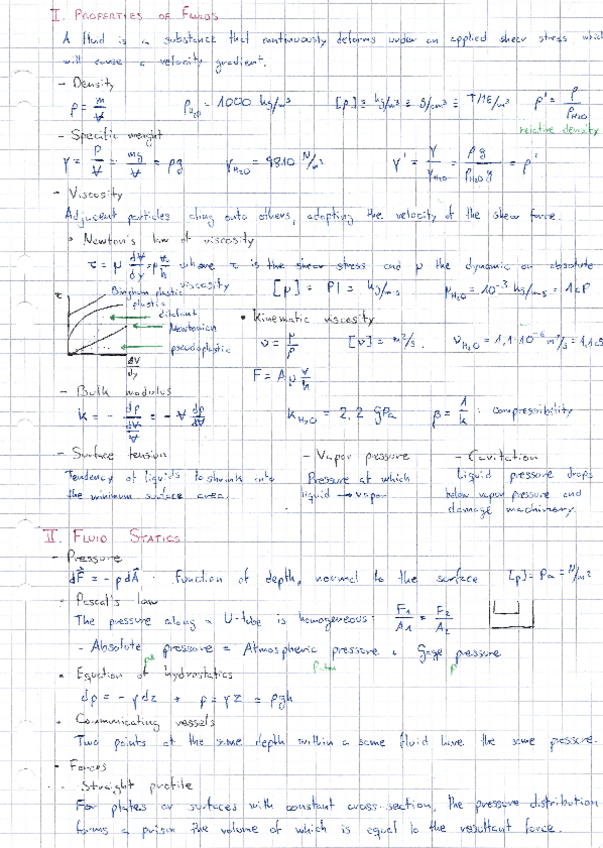 II. PROPERTIES OF FLUIDS
A fluid is a substance that continuously deforms under an applied shear stress which
will cause a velocity gradient.
- Density
ρ = m/V   ρH2O = 1000 kg/m³   [ρ] = kg/m³ = g/cm³ =   ρ' = ρ/ρH2O
relative density
- Specific weight
γ = P/V = mg/V = ρg   γH2O = 9810 N/m³   γ' = γ/γH2O = ρg/ρH2O g = ρ'
- Viscosity
Adjacent particles cling onto others, adopting the velocity of the shear force.
• Newton's law of viscosity
τ = μ dV/dy = μ v/h where τ is the shear stress and μ the dynamic or absolute
viscosity   [μ] = Pl = kg/m·s   μH2O = 10⁻³ kg/m·s = 1 cP
τ
Bingham plastic
plastic
dilatant
Newtonian
pseudoplastic
dV/dy
• Kinematic viscosity
ν = μ/ρ   [ν] = m²/s.   νH2O = 1,1·10⁻⁶ m²/s = 1,1 cS
F = A μ v/h
- Bulk modulus
k = - dp/(dV/V) = - V dp/dV   kH2O = 2,2 GPa   β = 1/k : compressibility
- Surface tension
Tendency of liquids to shrink into
the minimum surface area.
- Vapor pressure
Pressure at which
liquid → vapor
- Cavitation
Liquid pressure drops
below vapor pressure and
damage machinery.
II. FLUID STATICS
- Pressure
dF = - p dA · Function of depth, normal to the surface   [p] = Pa = N/m²
- Pascal's law
The pressure along a U-tube is homogeneous: F1/A1 = F2/A2
- Absolute pressure = Atmospheric pressure + Gage pressure
p
• Equation of hydrostatics
dp = - γ dz → p = γ z = ρgh
• Communicating vessels
Two points at the same depth within a same fluid have the same pressure.
- Forces
· Straight profile
For plates or surfaces with constant cross-section, the pressure distribution
forms a prism the volume of which is equal to the resultant force.